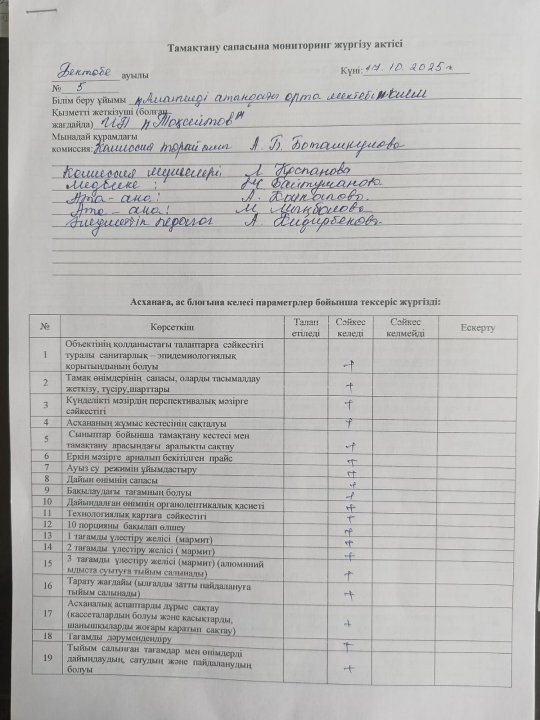 Тамақтану сапасына мониторинг жүргізу актісі
Бектөбе ауылы Күні: 17.10.2025ж
№ 5
Білім беру ұйымы атындағы орта мектебі" КММ
Қызметті жеткізуші (болған
жағдайда) ИП "Тоқсейтов"
Мынадай құрамдағы
комиссия: Комиссия төрайымы А. Б. Боташкулова
Комиссия мүшелері Л Қоспанова
Медбике: Ж Байтуманова
Ата-ана:
Ата-ана: М.
Әлеуметтік педагог А.
Асханаға, ас блогына келесі параметрлер бойынша тексеріс жүргізді:
№ Көрсеткіш Талап етіледі Сәйкес келеді Сәйкес келмейді Ескерту
1 Объектінің қолданыстағы талаптарға сәйкестігі
туралы санитарлық – эпидемиологиялық
қорытындының болуы +
2 Тамақ өнімдерінің сапасы, оларды тасымалдау
жеткізу, түсіру,шарттары +
3 Күнделікті мәзірдің перспективалық мәзірге
сәйкестігі +
4 Асхананың жұмыс кестесінің сақталуы +
5 Сыныптар бойынша тамақтану кестесі мен
тамақтану арасындағы аралықты сақтау +
6 Еркін мәзірге арналып бекітілген прайс +
7 Ауыз су режимін ұйымдастыру +
8 Дайын өнімнің сапасы +
9 Бақылаудағы тағамның болуы +
10 Дайындалған өнімнің органолептикалық қасиеті +
11 Технологиялық картаға сәйкестігі +
12 10 порцияны бақылап өлшеу +
13 1 тағамды үлестіру желісі (мармит) +
14 2 тағамды үлестіру желісі ( мармит) +
15 3 тағамды үлестіру желісі (мармит) (алюминий
ыдыста суытуға тыйым салынады) +
16 Тарату жағдайы (ылғалды затты пайдалануға
тыйым салынады) +
17 Асханалық аспаптарды дұрыс сақтау
(кассеталардың болуы және қасықтарды,
шанышқыларды жоғары қаратып сақтау) +
18 Тағамды дәрумендендіру +
19 Тыйым салынған тағамдар мен өнімдерді
дайындаудың, сатудың және пайдаланудың
болуы +